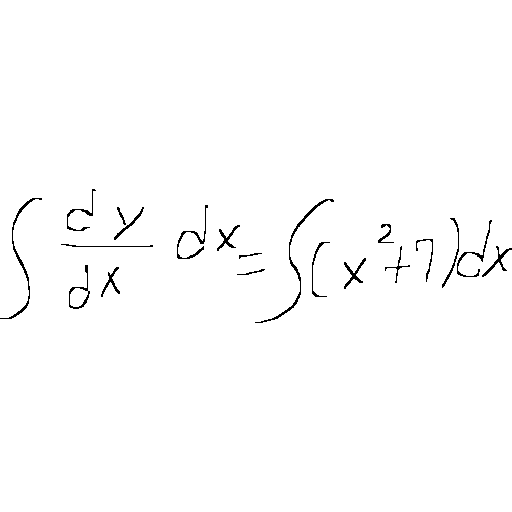 ∫ dy/dx dx = ∫(x²+7)dx